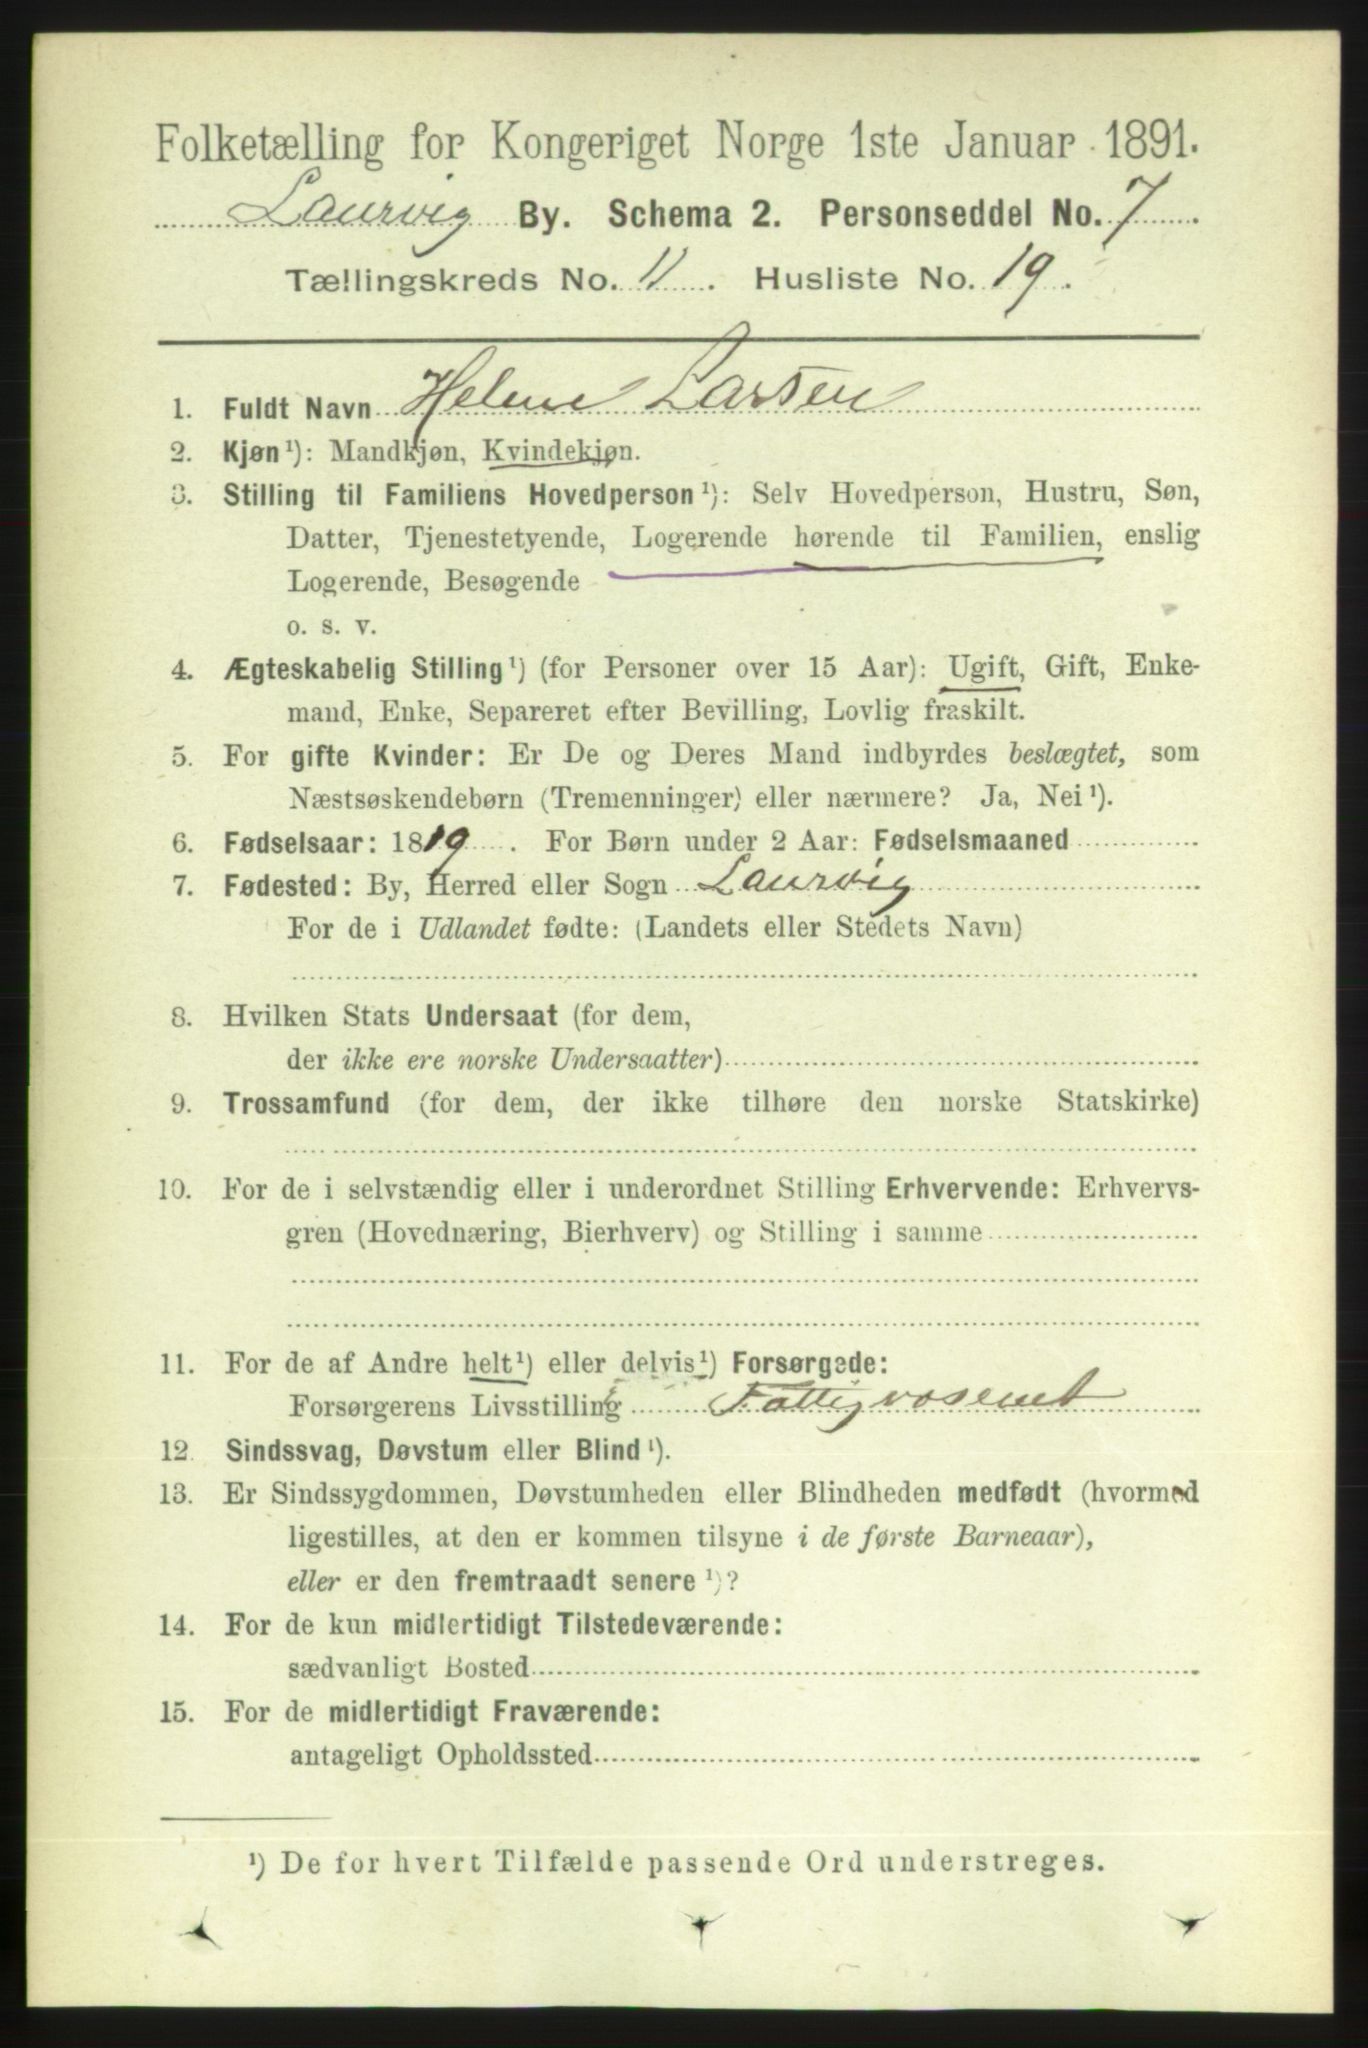 Folketælling for Kongeriget Norge 1ste Januar 1891.
Laurvig By. Schema 2. Personseddel No. 7
Tællingskreds No. 11. Husliste No. 19.
1. Fuldt Navn Helene Larsen
2. Kjøn¹): Mandkjøn, Kvindekjøn.
3. Stilling til Familiens Hovedperson¹): Selv Hovedperson, Hustru, Søn,
Datter, Tjenestetyende, Logerende hørende til Familien, enslig
Logerende, Besøgende
o. s. v.
4. Ægteskabelig Stilling¹) (for Personer over 15 Aar): Ugift, Gift, Enke-
mand, Enke, Separeret efter Bevilling, Lovlig fraskilt.
5. For gifte Kvinder: Er De og Deres Mand indbyrdes beslægtet, som
Næstsøskendebørn (Tremenninger) eller nærmere? Ja, Nei¹).
6. Fødselsaar: 1819. For Børn under 2 Aar: Fødselsmaaned
7. Fødested: By, Herred eller Sogn Laurvig
For de i Udlandet fødte: (Landets eller Stedets Navn)
8. Hvilken Stats Undersaat (for dem,
der ikke ere norske Undersaatter)
9. Trossamfund (for dem, der ikke tilhøre den norske Statskirke)
10. For de i selvstændig eller i underordnet Stilling Erhvervende: Erhvervs-
gren (Hovednæring, Bierhverv) og Stilling i samme
11. For de af Andre helt¹) eller delvis¹) Forsørgede:
Forsørgerens Livsstilling Fattigvæsenet
12. Sindssvag, Døvstum eller Blind¹).
13. Er Sindssygdommen, Døvstumheden eller Blindheden medfødt (hvormed
ligestilles, at den er kommen tilsyne i de første Barneaar),
eller er den fremtraadt senere¹)?
14. For de kun midlertidigt Tilstedeværende:
sædvanligt Bosted
15. For de midlertidigt Fraværende:
antageligt Opholdssted
¹) De for hvert Tilfælde passende Ord understreges.